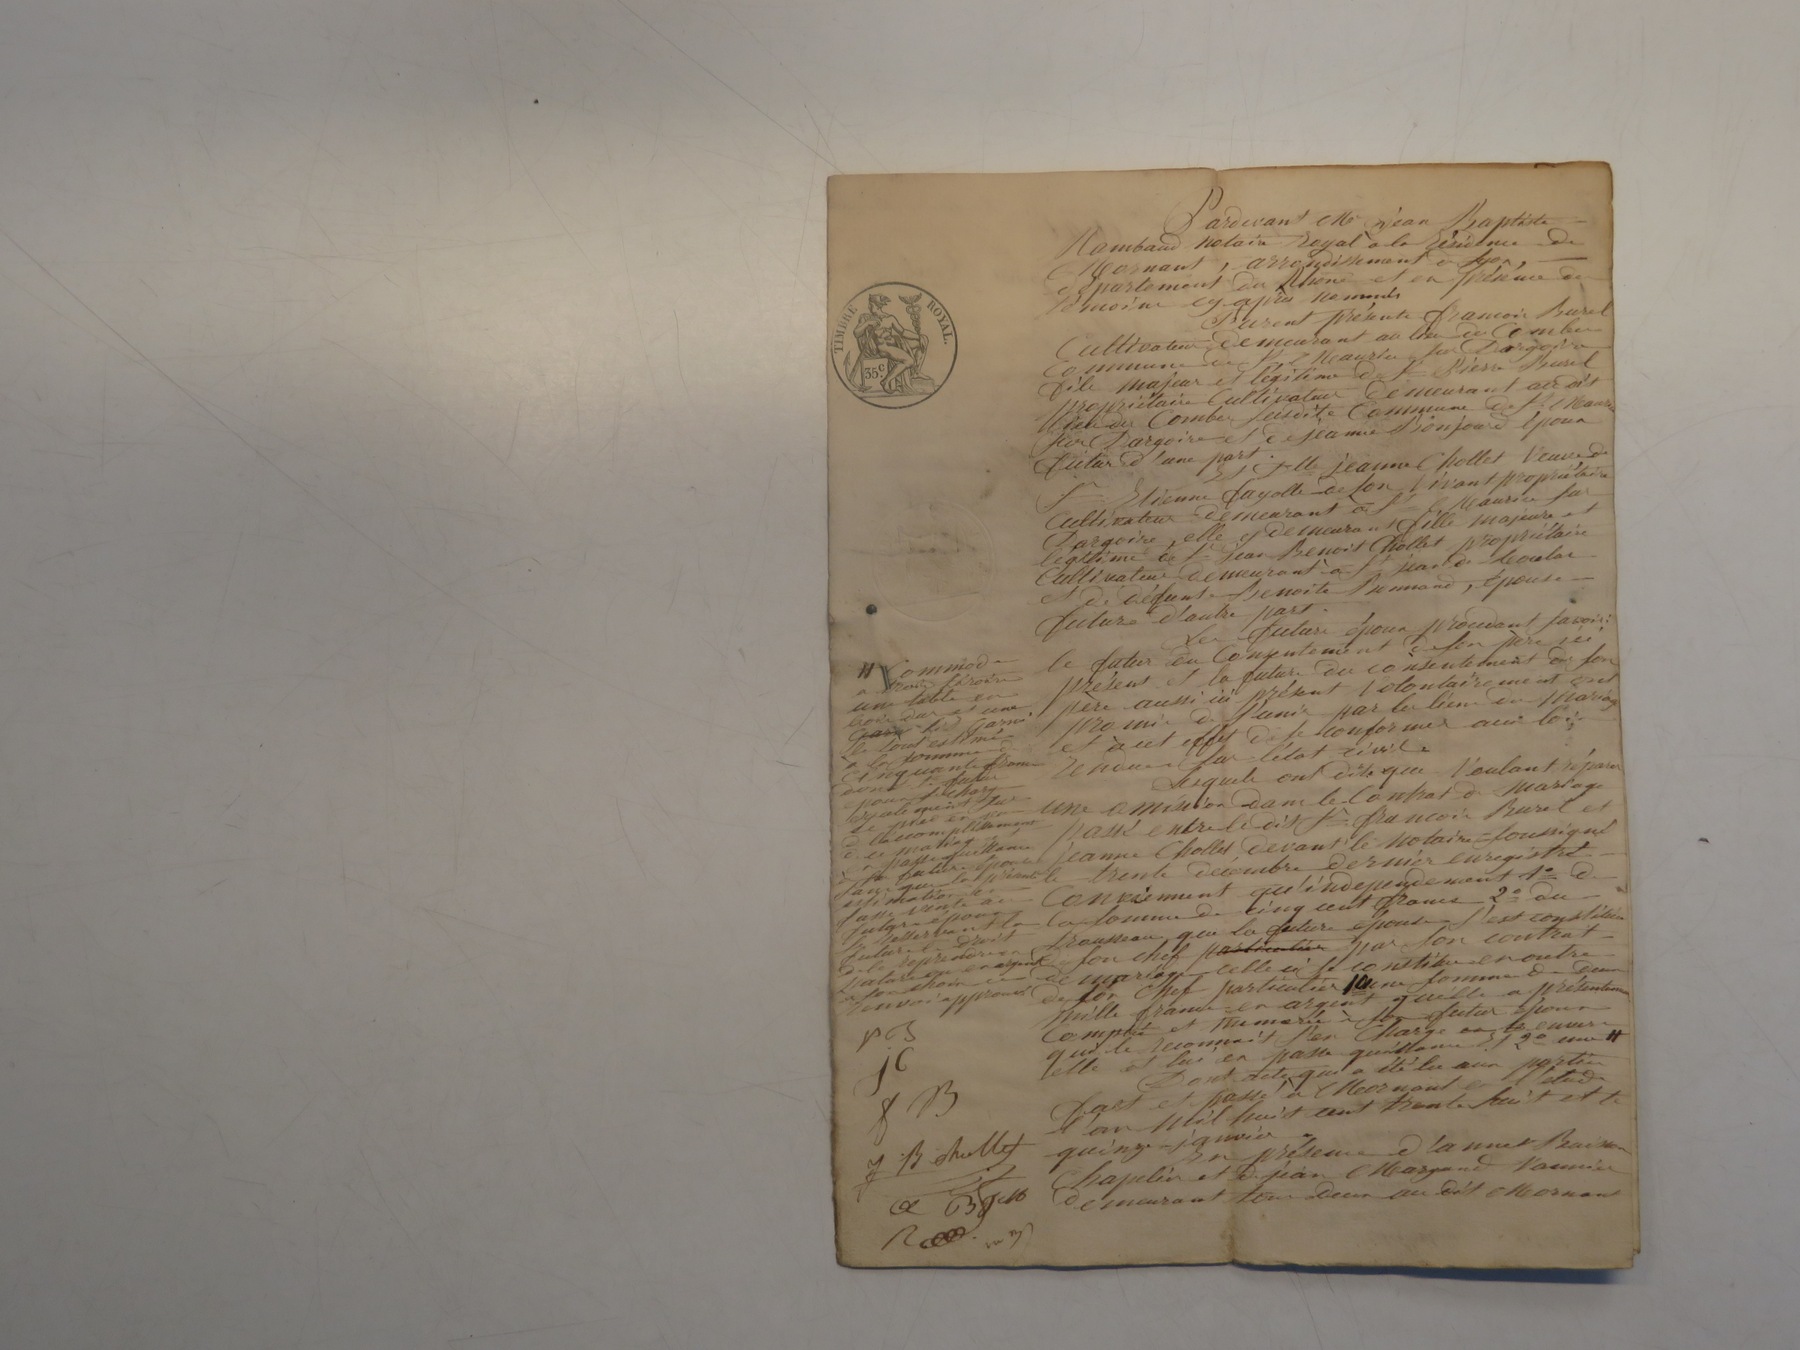 TIMBRE ROYAL.
35 c.
Pardevant Me Jean Baptiste
Rambaud notaire royal à la résidence de
Mornant, arrondissement de Lyon,
département du Rhône et en présence des
témoins cy après nommés
Furent présents françois Burel
Cultivateur demeurant au lieu des Combes
Commune de St Maurice sur Dargoire
fils majeur et légitime de Sr Pierre Burel
propriétaire Cultivateur demeurant au dit
lieu des Combes susdite Commune de St Maurice
sur Dargoire et de jeanne Bonjour époux
futur d'une part.
Et jeanne Chollet Veuve de
Sr Etienne fayolle de son vivant propriétaire
Cultivateur demeurant à St Maurice sur
Dargoire, elle y demeurant fille majeure et
légitime de Sr jean Benoit Chollet propriétaire
Cultivateur demeurant à St jean de
et de défunte Benoite, épouse
future d'autre part.
Les futurs époux procédant savoir:
le futur du Consentement de son père ici
présent et la future du consentement de son
père aussi ici présent Volontairement ont
promis de s'unir par les liens du Mariage
et à cet effet de se conformer aux lois
sur l'état civil.
Lesquels ont dit que Voulant réparer
une omission dans le Contrat de Mariage
passé entre le dit Sr françois Burel et
jeanne Chollet devant le Notaire soussigné
le trente décembre dernier enregistré
Conviennent qu'indépendemment 1o de
la somme de cinq cent francs 2o du
trousseau que la future épouse s'est constituée
de son chef particulier par son contrat
de mariage celle ci se constitue en outre
de son chef particulier 1o une somme de deux
mille francs en argent qu'elle a présentement
Compté et Numéré à son futur époux
qui le reconnait s'en Charge envers
elle et lui en passe quittance Et 2o une #
Dont acte qui a été lu aux parties
fait et passé à Mornant en l'étude
l'an Mil huit cent trente huit et le
quinze janvier.
En présence d'
Chapelier et de jean
demeurant tous deux au dit Mornant
# Commode
à trois tiroirs
une table en
bois dur et une
garde lit garni
le tout estimé
à la somme de
Cinquante francs
dont le futur
époux se charge
également
d'accomplissement
de ce mariage
en passe quittance
à sa future épouse
sans que la présente
estimation en
fasse vente au
futur époux
se réservant la
future le droit
de le reprendre en
nature ou en argent
à son choix
renvoi approuvé
P B
j C
f B
j B chollet